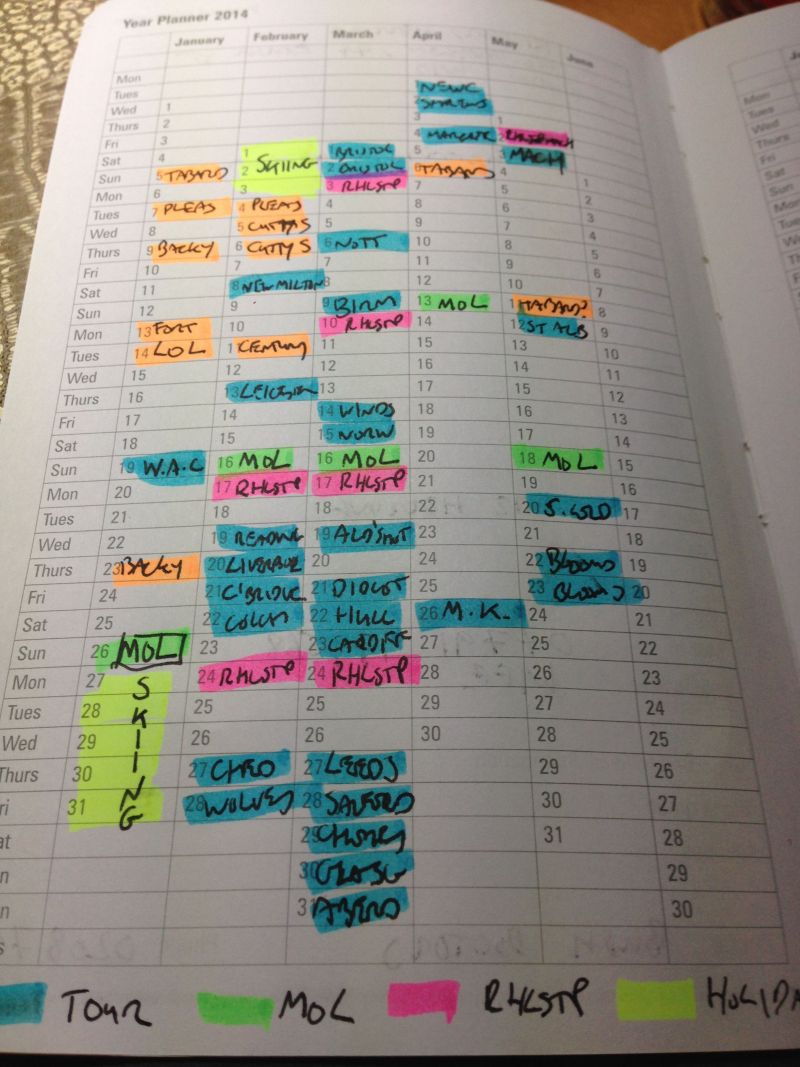 Year Planner 2014
January February March April May June
Mon
Tues NEWC
Wed 1 2
Thurs 2 3 1
Fri 3 4 MARGATE
Sat 4 1 1 BRISTOL 5 3 MACH
Sun 5 TABARD 2 SKIING 2 BRISTOL 6 TABARD 4 1
Mon 6 3 3 RHLSTP 7 5 2
Tues 7 PLEAS 4 PLEAS 4 8 6 3
Wed 8 5 CUTTY S 5 9 7 4
Thurs 9 BACKY 6 CUTTY S 6 NOTT 10 8 5
Fri 10 7 11 9 6
Sat 11 8 NEW MILTON 8 12 10 7
Sun 12 9 9 BIRM 13 MOL 1 TABARD? 8
Mon 13 FORT 10 10 RHLSTP 14 12 ST ALB 9
Tues 14 LOL 1 CENTURY 11 15 13 10
Wed 15 12 12 16 14 11
Thurs 16 13 LEICESTER 13 17 15 12
Fri 17 14 14 WINDS 18 16 13
Sat 18 15 15 NORW 19 17 14
Sun 19 W.A.C 16 MOL 16 MOL 20 18 MOL 15
Mon 20 17 RHLSTP 17 RHLSTP 21 19 16
Tues 21 18 18 22 20 S.COLD 17
Wed 22 19 READING 19 ALD'SHOT 23 21 18
Thurs 23 BACKY 20 LIVERPOOL 20 24 22 BLOOMS 19
Fri 24 21 C'BRIDGE 21 DIDCOT 25 23 BLOOMS 20
Sat 25 22 COLCH 22 HULL 26 M.K. 24 21
Sun 26 MOL 23 23 CARDIFF 27 25 22
Mon 27 SKIING 24 RHLSTP 24 RHLSTP 28 26 23
Tues 28 25 25 29 27 24
Wed 29 26 26 30 28 25
Thurs 30 27 CHED 27 LEEDS 29 26
ri 31 28 WOLVES 28 SALFORD 30 27
at 29 CHORLEY 31 28
n 30 GLASG 29
n 31 ABERD 30
s
TOUR MOL RHLSTP HOLIDA